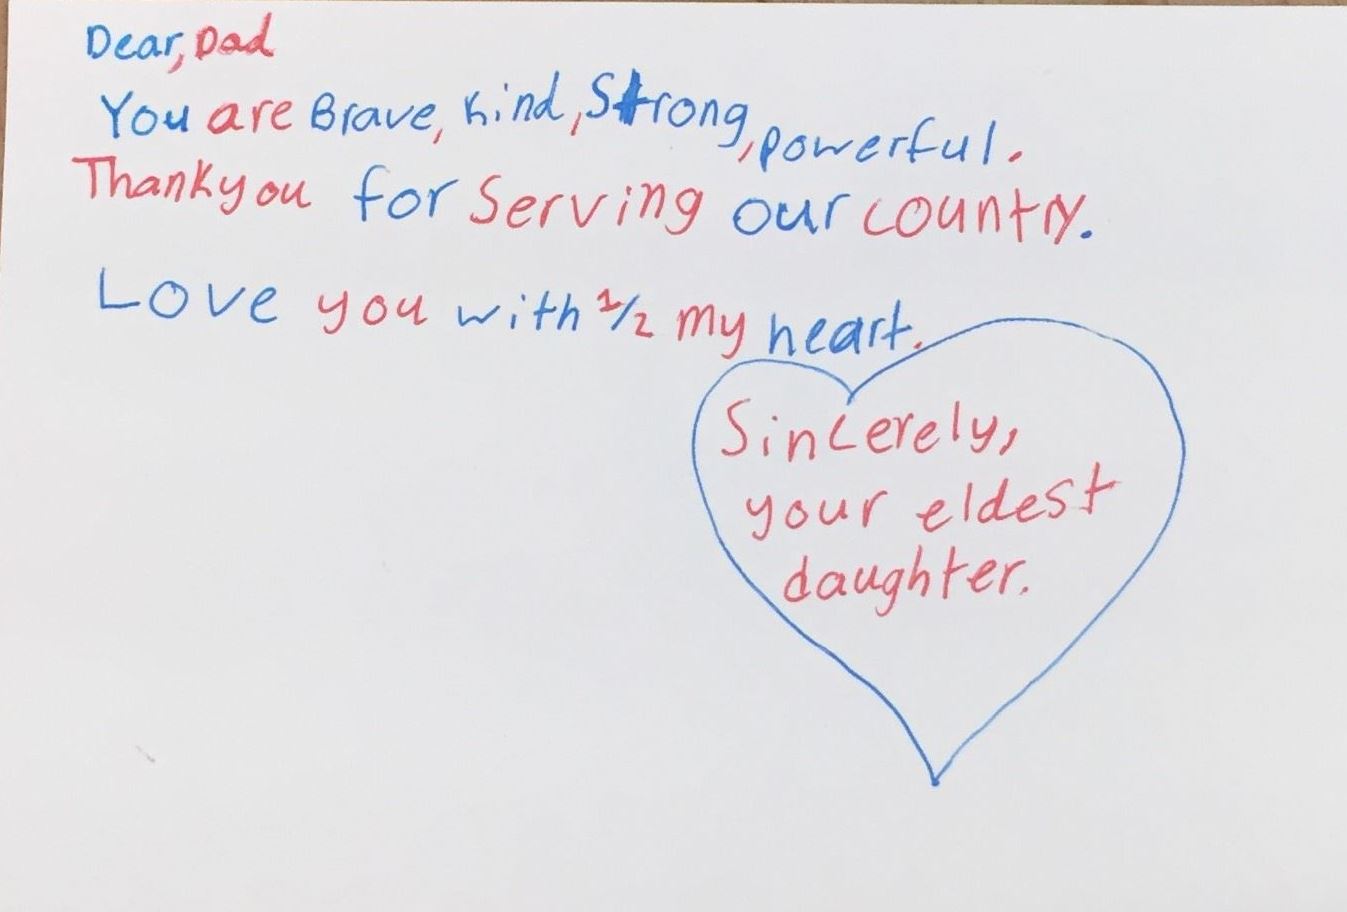 Dear, Dad
You are Brave, kind, Strong, powerful.
Thankyou for Serving our country.
Love you with 1/2 my heart.
Sincerely,
your eldest
daughter.